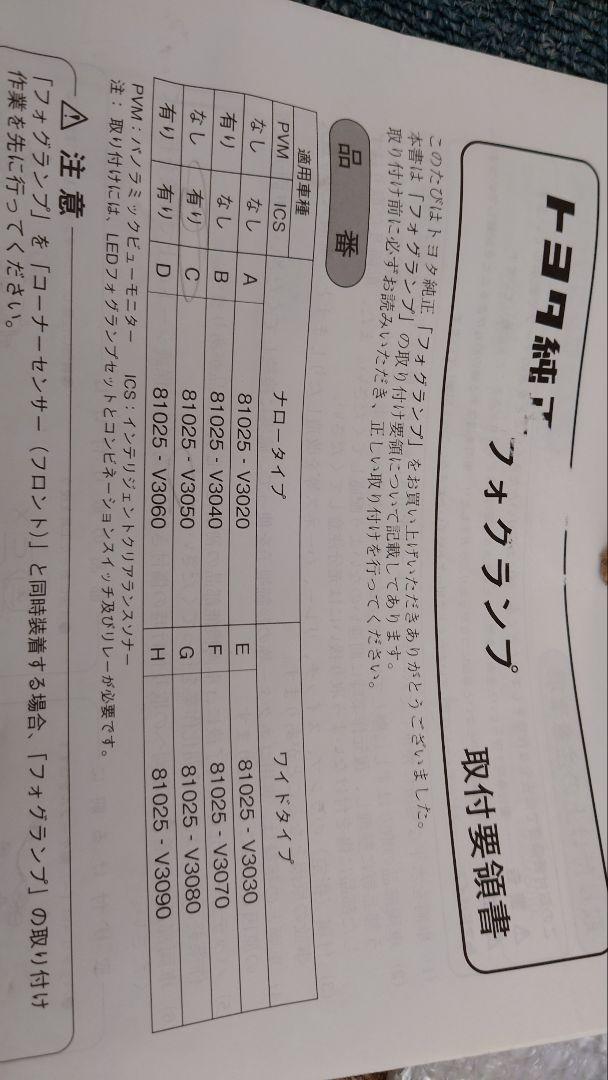 トヨタ純正 フォグランプ 取付要領書
このたびはトヨタ純正「フォグランプ」をお買い上げいただきありがとうございました。
本書は「フォグランプ」の取り付け要領について記載してあります。
取り付け前に必ずお読みいただき、正しい取り付けを行ってください。
品番
適用車種 ナロータイプ ワイドタイプ
PVM ICS
なし なし A 81025 - V3020 E 81025 - V3030
有り なし B 81025 - V3040 F 81025 - V3070
なし 有り C 81025 - V3050 G 81025 - V3080
有り 有り D 81025 - V3060 H 81025 - V3090
PVM：パノラミックビューモニター ICS：インテリジェントクリアランスソナー
注： 取り付けには、LEDフォグランプセットとコンビネーションスイッチ及びリレーが必要です。
注意
「フォグランプ」を「コーナーセンサー（フロント）」と同時装着する場合、「フォグランプ」の取り付け
作業を先に行ってください。